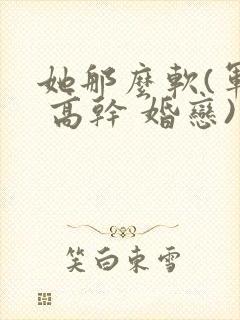 她那麼軟(軍
高幹 婚戀)
笑白東雪